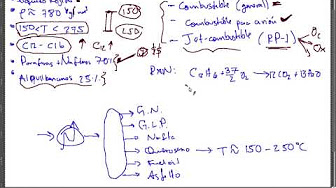 ρ ≈ 780 kg/m³
150 < T < 275
C12 - C16
Parafinas + Naftenos 70%
Alquilbencenos 25%
150
250
- Combustible (general)
- Combustible para avión
- Jet-combustible (RP-1)
O₂
Rxn: C₁₂H₂₆ + 37/2 O₂ → 12CO₂ + 13H₂O
G.N.
G.L.P.
Nafta
Queroseno → T ≈ 150-250°C
Fueloil
Asfalto